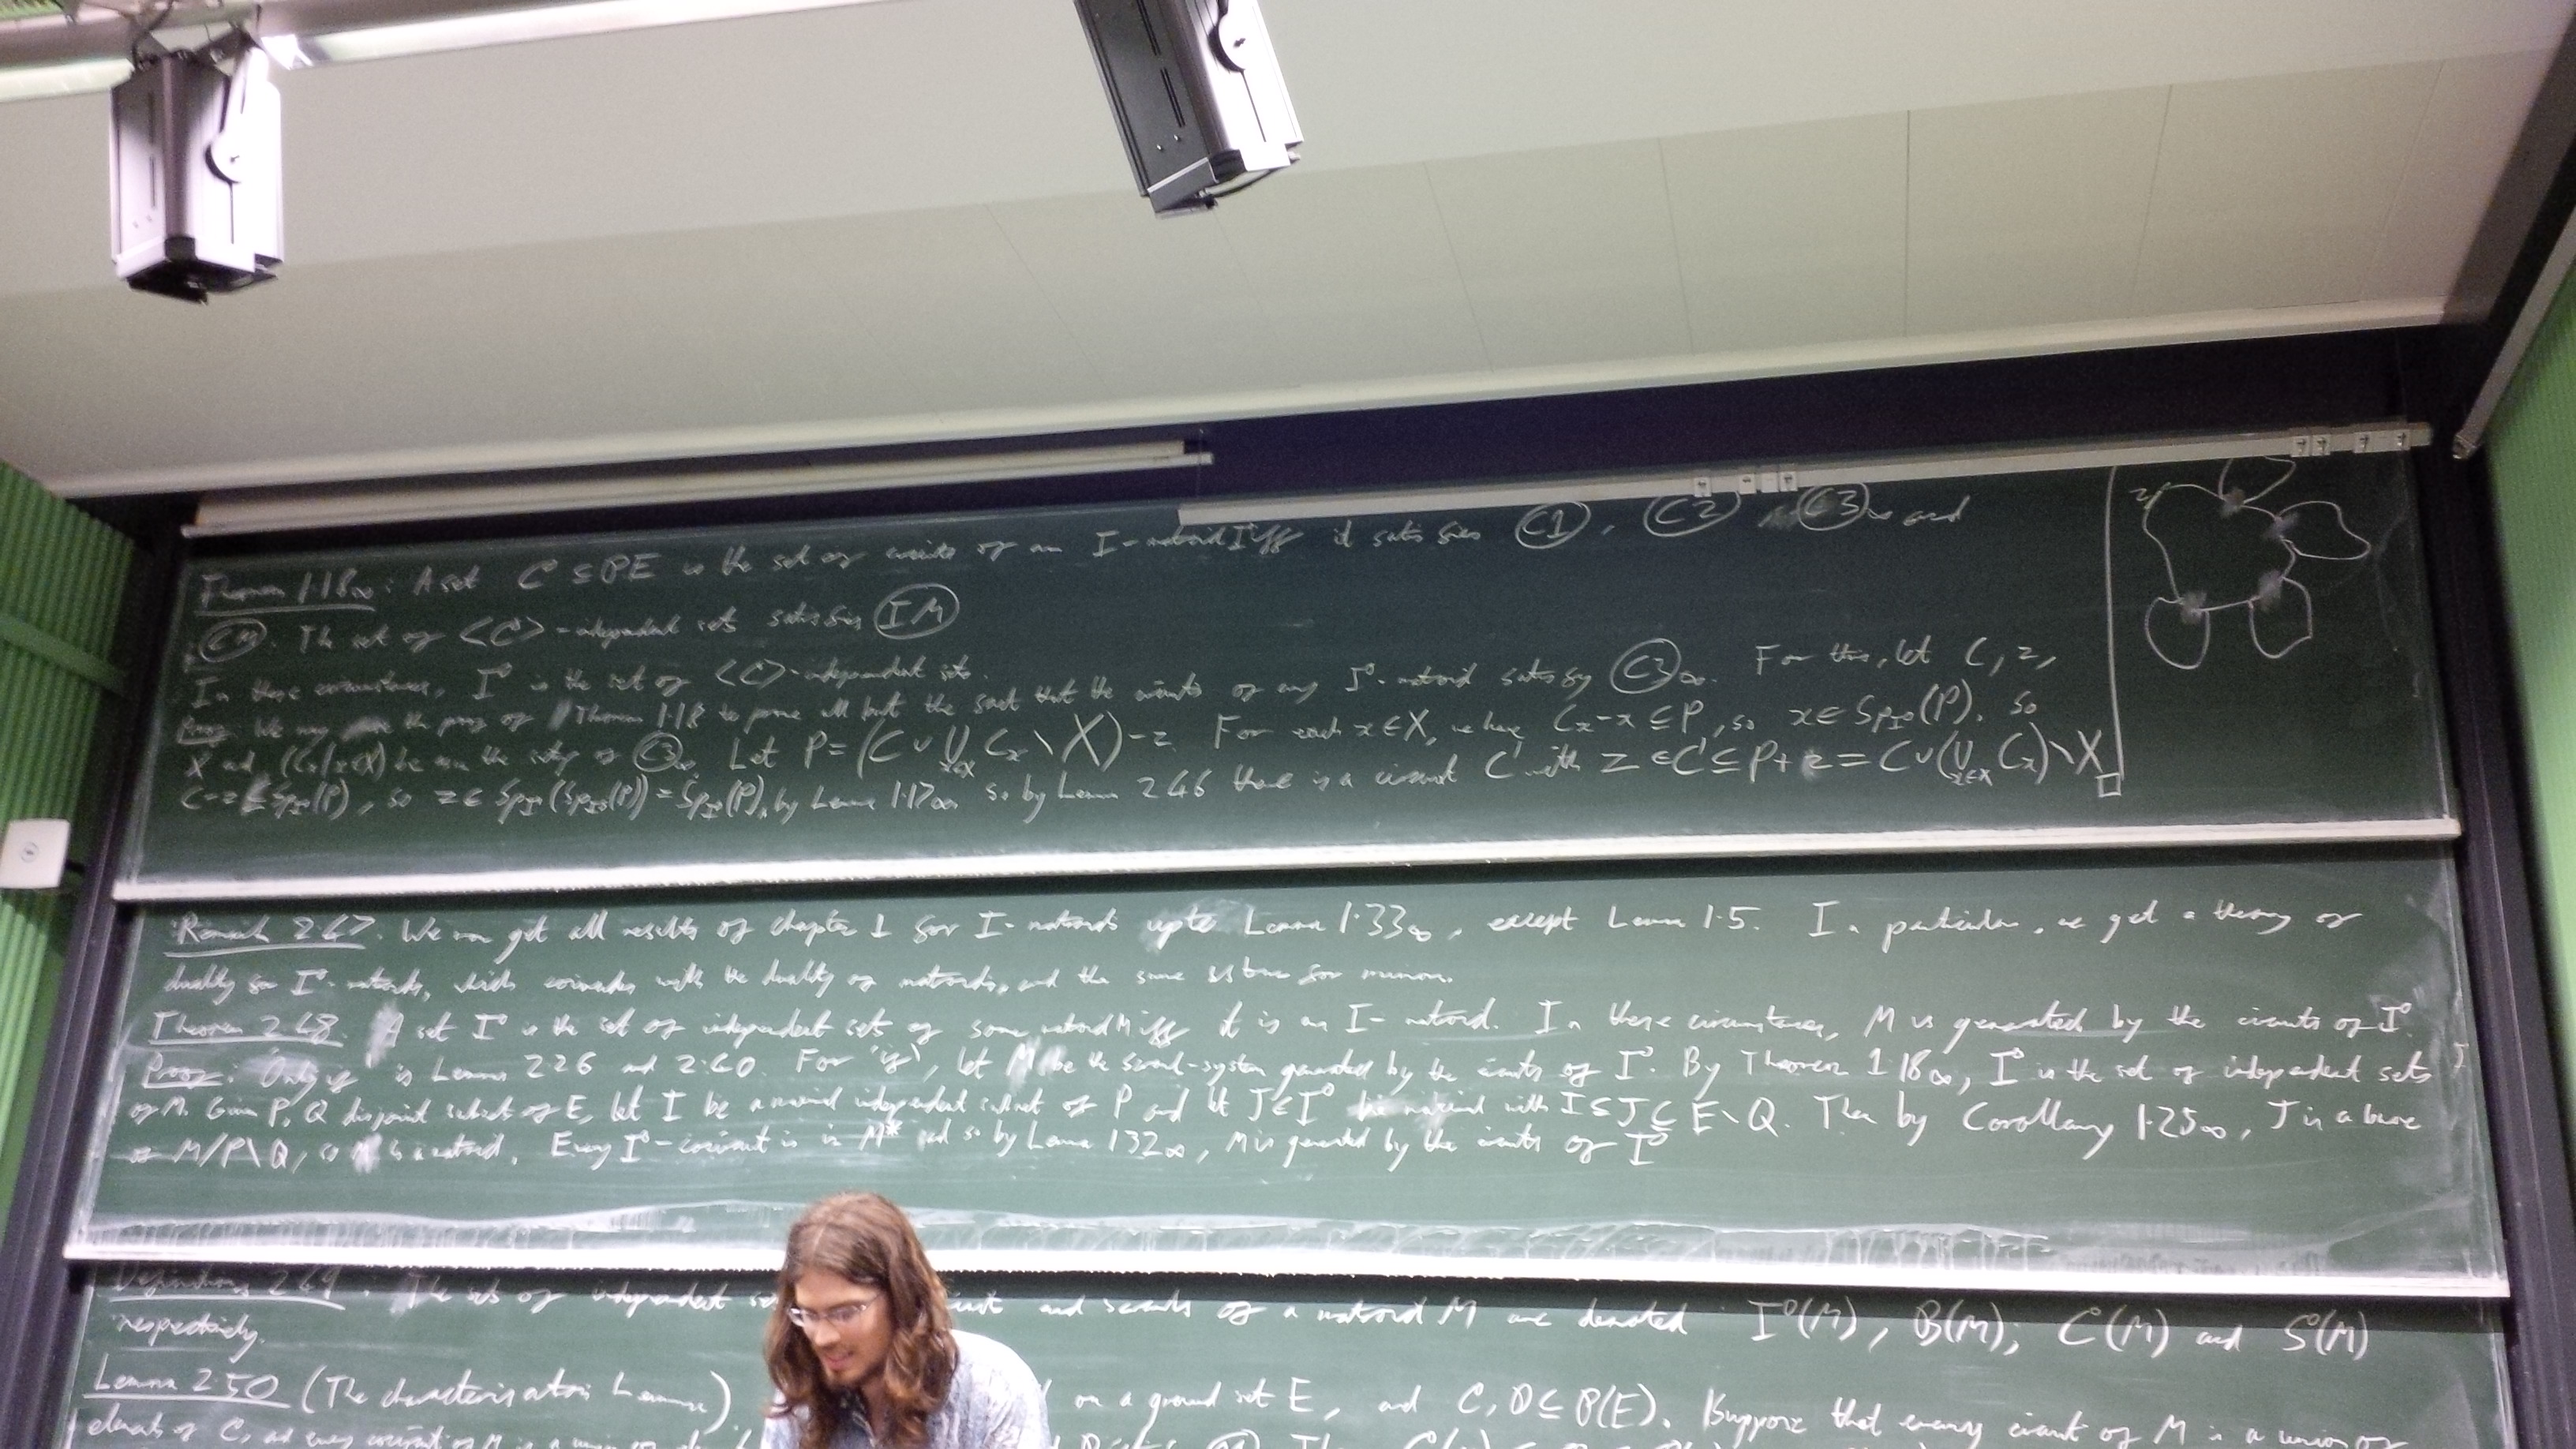 Theorem 1.18∞: A set C ⊆ PE is the set of circuits of an I-matroid I iff it satisfies (C1), (C2), (C3)∞ and
(CM). The set of <C>-independent sets satisfies (IM)
In these circumstances, I is the set of <C>-independent sets.
Proof: We may the proof of Theorem 1.18 to prove all but the fact that the circuits of any I-matroid satisfy (C3)∞. For this, let C, z,
X and (Cx|x∈X) be as in the setup of (C3)∞. Let P = (C ∪ ⋃x∈X Cx \ X) - z. For each x ∈ X, we have Cx - x ⊆ P, so x ∈ SpI(P). So
C - z ⊆ SpI(P), so z ∈ SpI(SpI(P)) = SpI(P), by Lemma 1.17∞ so by Lemma 2.46 there is a circuit C' with z ∈ C' ⊆ P + z = C ∪ (⋃x∈X Cx) \ X □
z
Remark 2.67. We can get all results of chapter 1 for I-matroids upto Lemma 1.33∞, except Lemma 1.5. In particular, we get a theory of
duality for I-matroids, which coincides with the duality of matroids, and the same is true for minors.
Theorem 2.68. A set I is the set of independent sets of some matroid M iff it is an I-matroid. In these circumstances, M is generated by the circuits of I.
Proof: 'Only if' is Lemma 2.26 and 2.60. For 'if', let M be the scrawl-system generated by the circuits of I. By Theorem 1.18∞, I is the set of independent sets
of M. Given P, Q disjoint subsets of E, let I be a maximal independent subset of P and let J ∈ I be maximal with I ⊆ J ⊆ E \ Q. Then by Corollary 1.25∞, J is a base
of M/P\Q, so M is a matroid. Every I-cocircuit is in M* and so by Lemma 1.32∞, M is generated by the circuits of I
Definition 2.69: The sets of independent and scrawls of a matroid M are denoted I(M), B(M), C(M) and S(M)
respectively.
Lemma 2.50 (The characterisation Lemma) on a ground set E, and C, D ⊆ P(E). Suppose that every circuit of M is a union of
elements of C, and every cocircuit of M is a union of